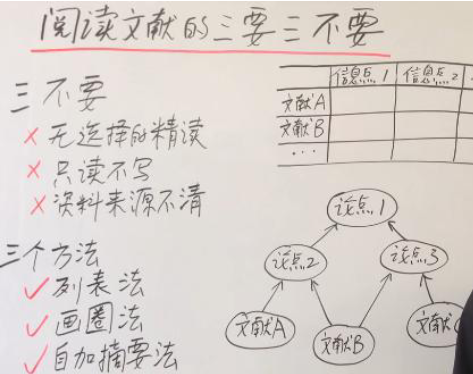 阅读文献的三要三不要
三不要
× 无选择的精读
× 只读不写
× 资料来源不清
三个方法
✓ 列表法
✓ 画圈法
✓ 自加摘要法
信息点1 信息点2
文献A
文献B
...
论点1
论点2 论点3
文献A 文献B 文献